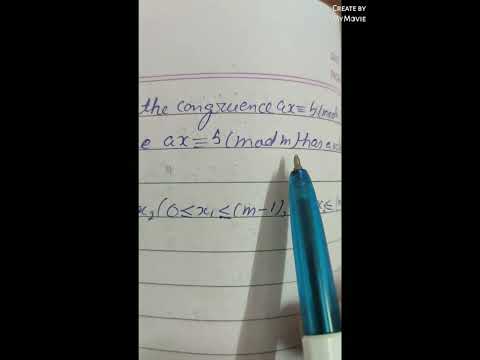 CREATE BY
MyMOVIE
the congruence ax ≡ 5 (mod
ax ≡ 5 (mod m) has
x₂ (0 ≤ x₁ ≤ (m-1),